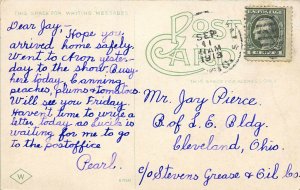 THIS SPACE FOR WRITING MESSAGES
POST
CARD
SEP
11
1913
Dear Jay:-
Hope you
arrived home safely.
Went to Akron yester-
day to the show. Busy
here today. Canning
peaches, plums & tomatoes.
Will see you Friday.
Haven't time to write a
letter today as Lucile is
waiting for me to go
to the postoffice
Pearl.
Mr. Jay Pierce.
B. of L. E. Bldg
Cleveland, Ohio.
c/o Stevens Grease & Oil Co.